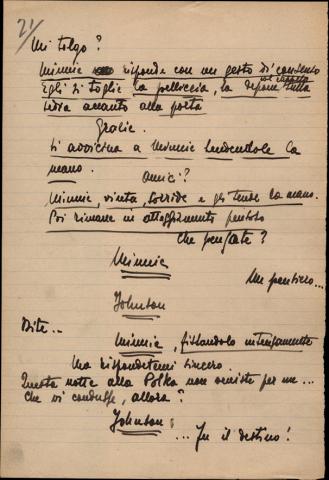 21/
Mi tolgo?
Minnie risponde con un gesto di consenso
Egli si toglie la pelliccia, la depone sulla
col cappello
sedia accanto alla porta
Grazie.
Si avvicina a Minnie tendendole la
mano.
Amici?
Minnie, vinta, sorride e gli tende la mano.
Poi rimane in atteggiamento pensoso
Che pensate?
Minnie
Un pensiero...
Johnson
Dite...
Minnie, fissandolo intensamente
Ma rispondetemi sincero.
Questa notte alla Polka non veniste per me...
che vi condusse, allora?
Johnson:
... Fu il destino!